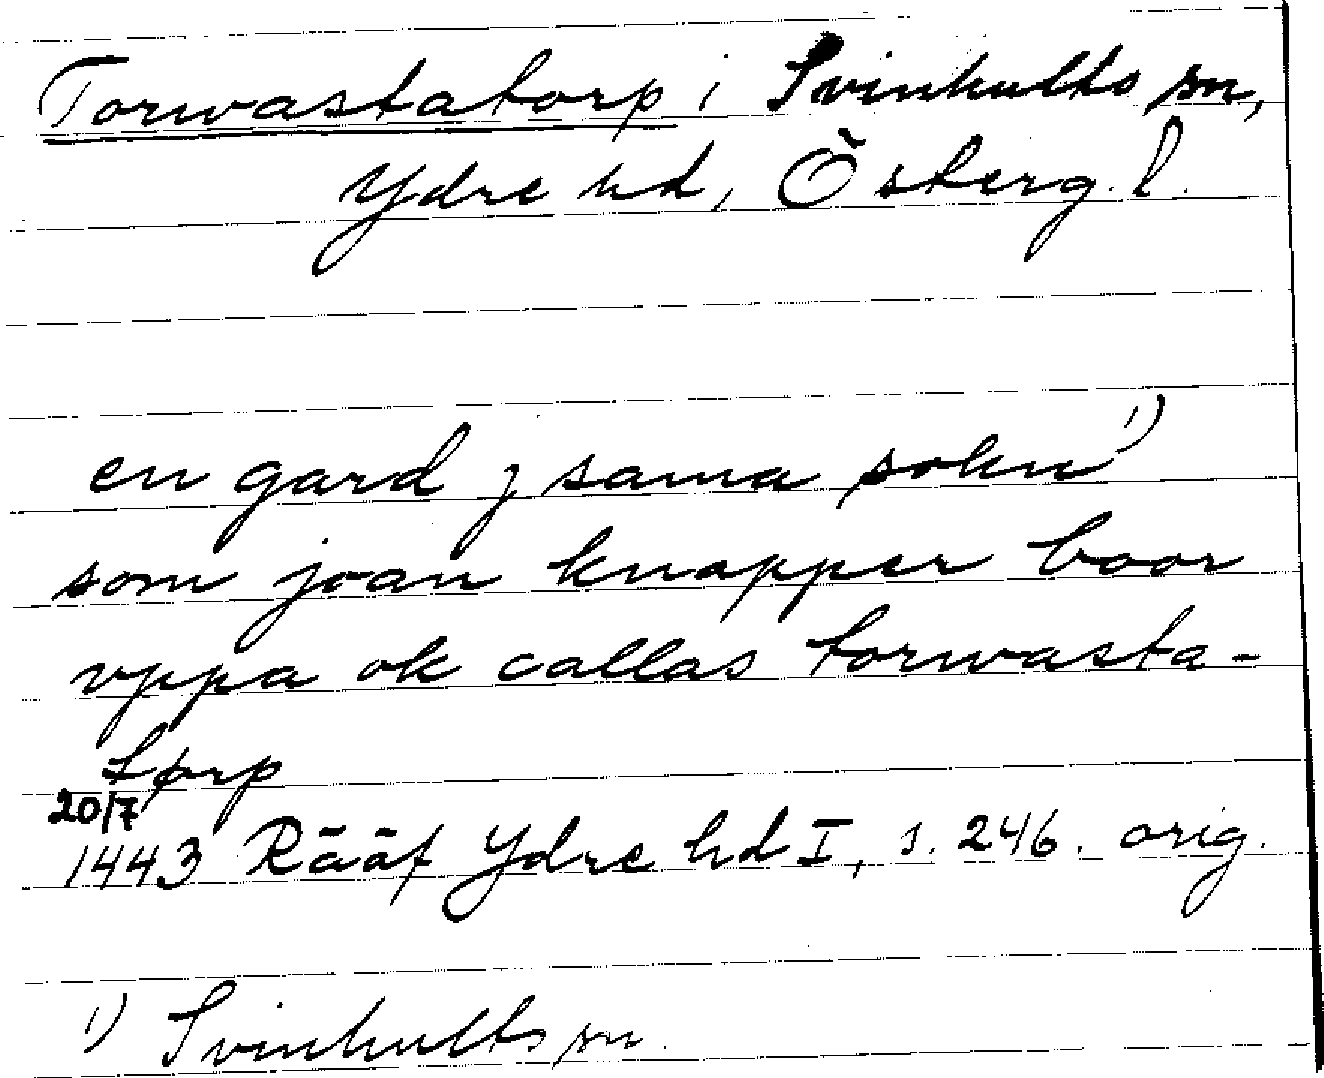 Torwastatorp i Svinhults sn,
Ydre hd, Österg. l.
en gard j sama sokn 1)
som joan knapper boor
vppa ok callas torwasta-
torp
20/7
1443 Rääf Ydre hd I, s. 246. orig.
1) Svinhults sn.